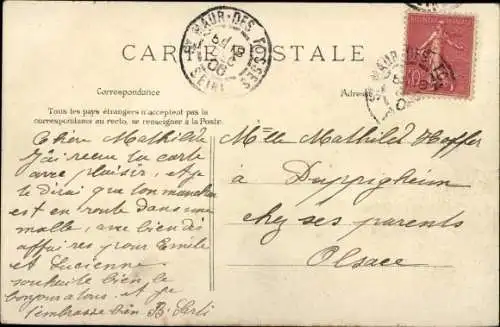 CARTE POSTALE
ST MAUR-DES-FOSSÉS
SEINE
Correspondance
Adresse
Tous les pays étrangers n'acceptent pas la
correspondance au recto, se renseigner à la Poste.
Chère Mathilde
J'ai reçu ta carte
avec plaisir, et je
te dirai que ton manchon
est en route dans une
malle, avec bien des
affaires pour Emile
et Lucienne
souhaite bien le
bonjour a tous. et je
t'embrasse bien B. Serli
Melle Mathilde Hoffer
à Duppigheim
chez ses parents
Alsace